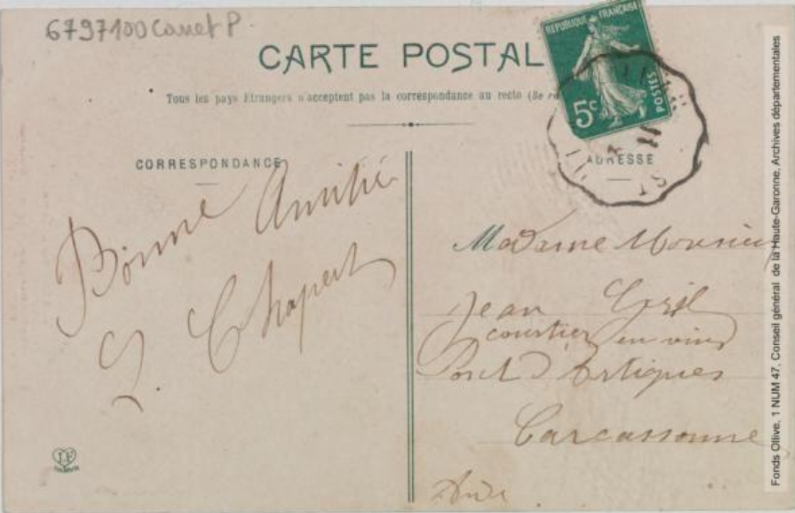 6797100 Canet P.
CARTE POSTAL
Tous les pays Etrangers n'acceptent pas la correspondance au recto (Se
REPUBLIQUE FRANÇAISE
POSTES
5c
CORRESPONDANCE
ADRESSE
Bonne Amitié
Madame Monsieur
Jean
courtier en vins
Carcassonne
Aude
Fonds Ollive, 1 NUM 47, Conseil général de la Haute-Garonne, Archives départementales